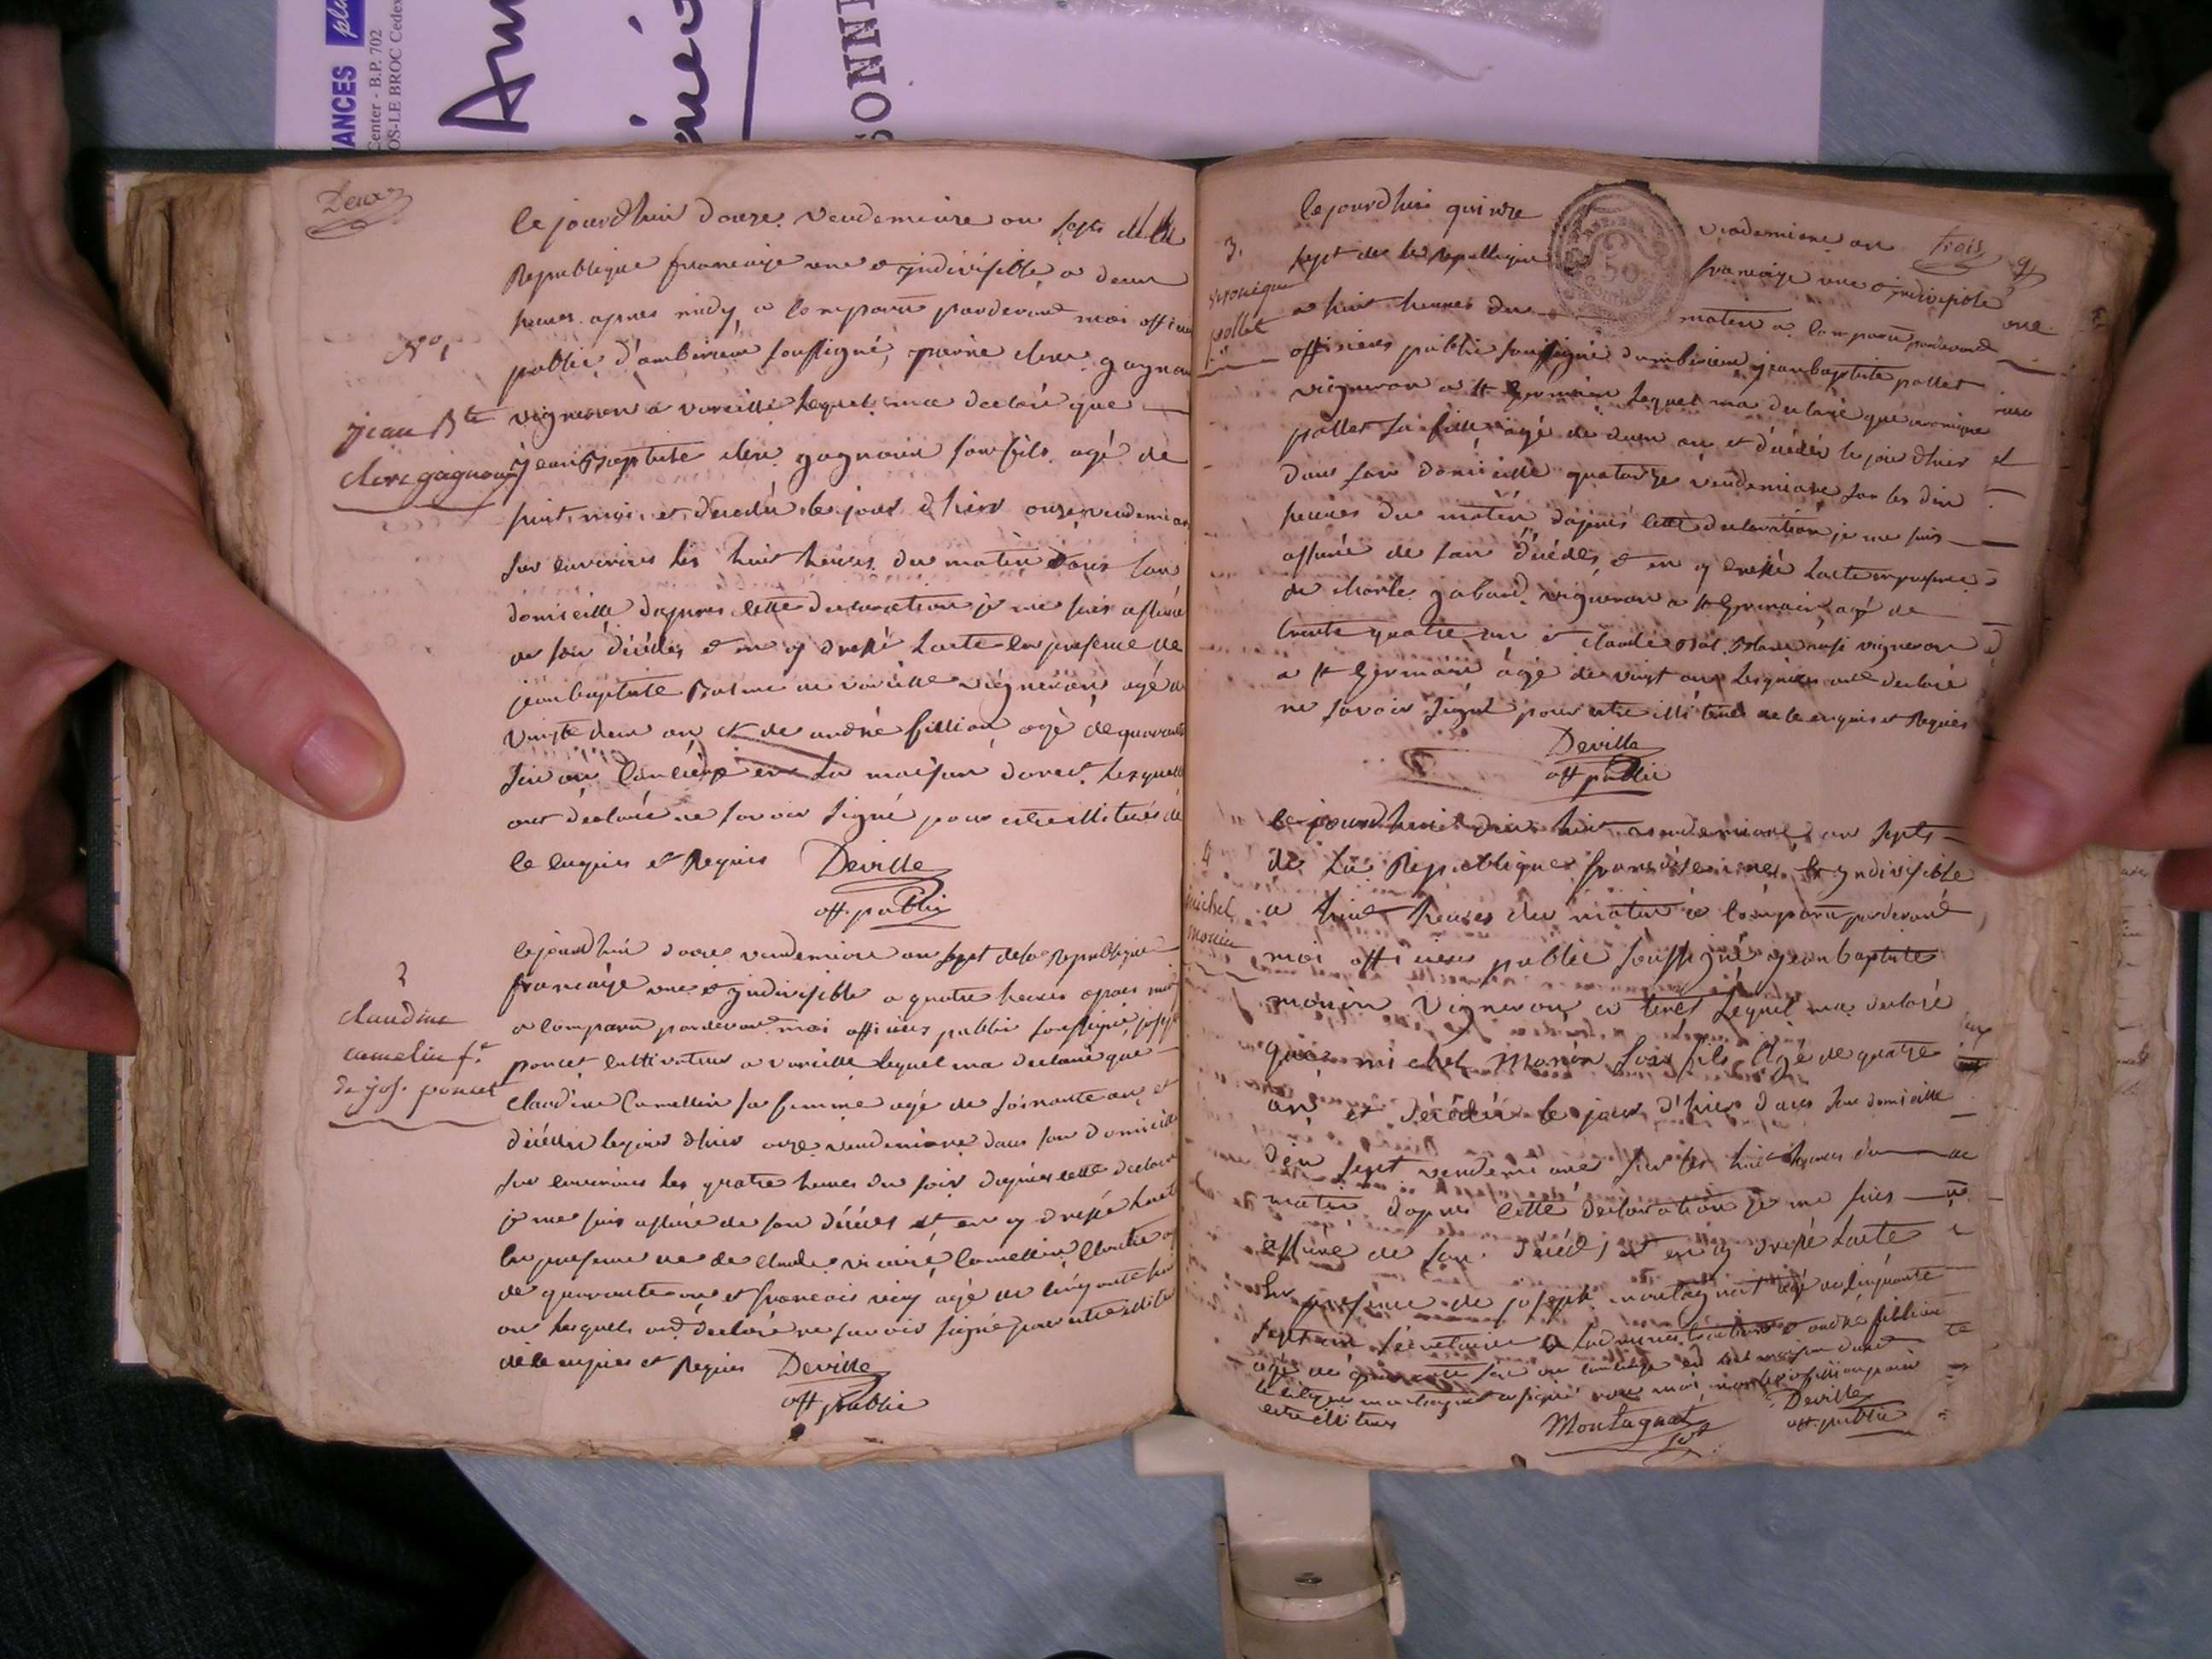 ANCES plu
Center - B.P. 702
OS-LE BROC Cedex
SONN
Deux
le jourdhui douze vendemiaire an sept de la
Republique francaise une et jndivisible a deux
heures apres midy, a comparu pardevant moi officier
public d'amberieux soussigné, pierre clerc gagnou
vigneron a vareille lequel ma declaré que
jean Baptiste clerc gagnoux son fils agé de
huit mois et decedé le jour d'hier onze vendemiaire
sur environs les huit heures du matin dans son
domicille dapres cette declaration je me suis assuré
de son décédes et en ay dressé lacte en presence de
jean baptiste Balme de vareille vigneron agé de
vingte deux an et de andré fillion agé de quarante
six an concierge en la maison d'arret lesquelle
ont déclaré ne savoir signé pour estre illiterés de
ce enquis et Requis Deville
off. public
N° 1
jean Bte
clerc gagnoux
lejourdhui douze vendemiaire an sept de la Republique
francaise une et jndivisible a quatre heures apres midi
a comparu pardevant moi officier public soussigné, joseph
poncet cultivateur a vareille lequel ma declaré que
claudine Camellin sa femme agé de soixante an et
décédée lejour dhier onze vendemiaire dans son domicille
sur environs les quatre heures du soir dapres cette declaration
je me suis assuré de son décédes et en ay dressé lacte
en presence de de claude Camellin
de quarante an et francois agé de cinquante
an lesquels ont declaré ne savoir signé pour estre illiteré
de ce enquis et Requis Deville
off public
2
claudine
camelin f.e
de jos. poncet
trois
lejourdhui quinze vendemiaire an
sept de la republique francaise une et jndivisible
a huit heures du matin a comparu pardevant
officier public soussigné damberieux jean baptiste pollet
vigneron a st Germain lequel ma declaré que veronique
pollet sa fille agé de deux an et décédée le jour dhier
dans son domicille quatorze vendemiaire sur les dix
heures du matin dapres cette declaration je me suis
assuré de son décédes, et en ay dressé lacte en presence
de charle gabard vigneron a st Germain, agé de
trente quatre an et claude vigneron
a st Germain agé de vingt an lesquels ont declaré
ne savoir signé pour estre illiterés de ce enquis et Requis
Deville
off public
3.
veronique
pollet
le jourdhui dix huit vendemiaire an sept
de la Republique francaise une et jndivisible
a huit heures du matin a comparu pardevant
moi officier public soussigné jean baptiste
monin vigneron a tiret lequel ma declaré
que michel Monin son fils agé de quatre
an et décédé le jour d'hier dans son domicille
dix sept vendemiaire sur les huit heures du
matin dapres cette declaration je me suis
assuré de son décédes et en ay dressé lacte
en presence de joseph montagnat agé de cinquante
sept an secretaire a ladministration et andré fillion
agé de quarante six an concierge en la maison daret
le citoyen montagnat a signé avec moi non led fillion pour
estre illiteres Montagnat Deville
off. public
4
michel
monin